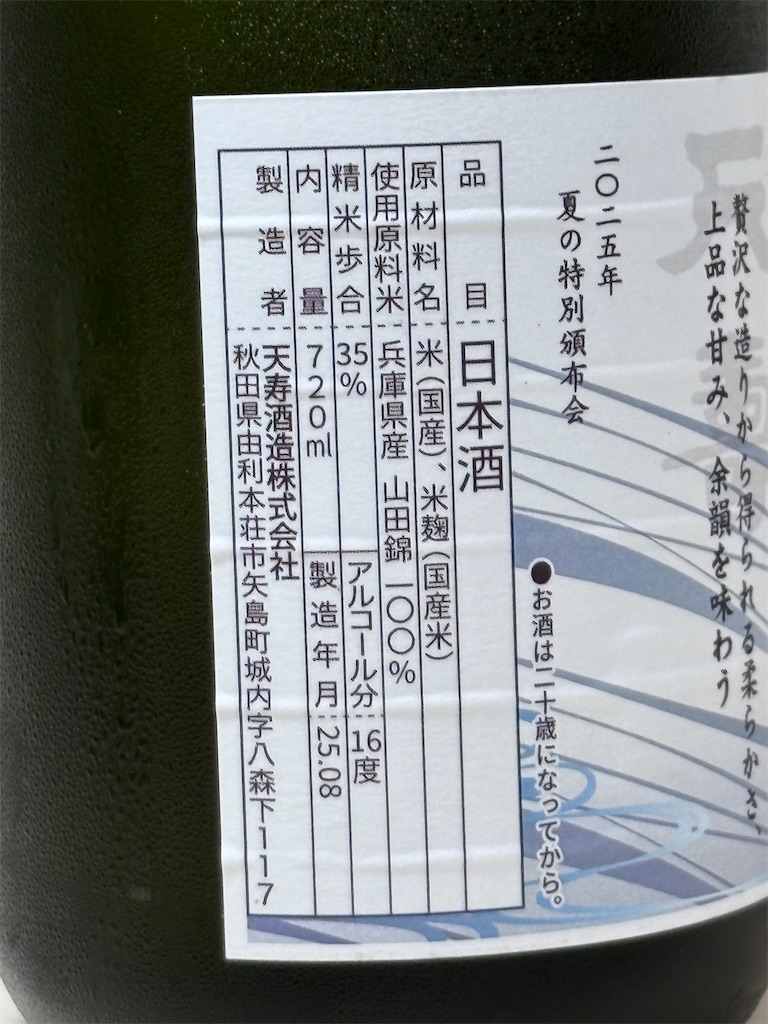 贅沢な造りから得られる柔らかさ、
上品な甘み、余韻を味わう
二〇二五年
夏の特別頒布会
●お酒は二十歳になってから。
品目 日本酒
原材料名 米(国産)、米麹(国産米)
使用原料米 兵庫県産 山田錦 一〇〇%
精米歩合 35% アルコール分 16度
内容量 720ml 製造年月 25.08
製造者 天寿酒造株式会社
秋田県由利本荘市矢島町城内字八森下117